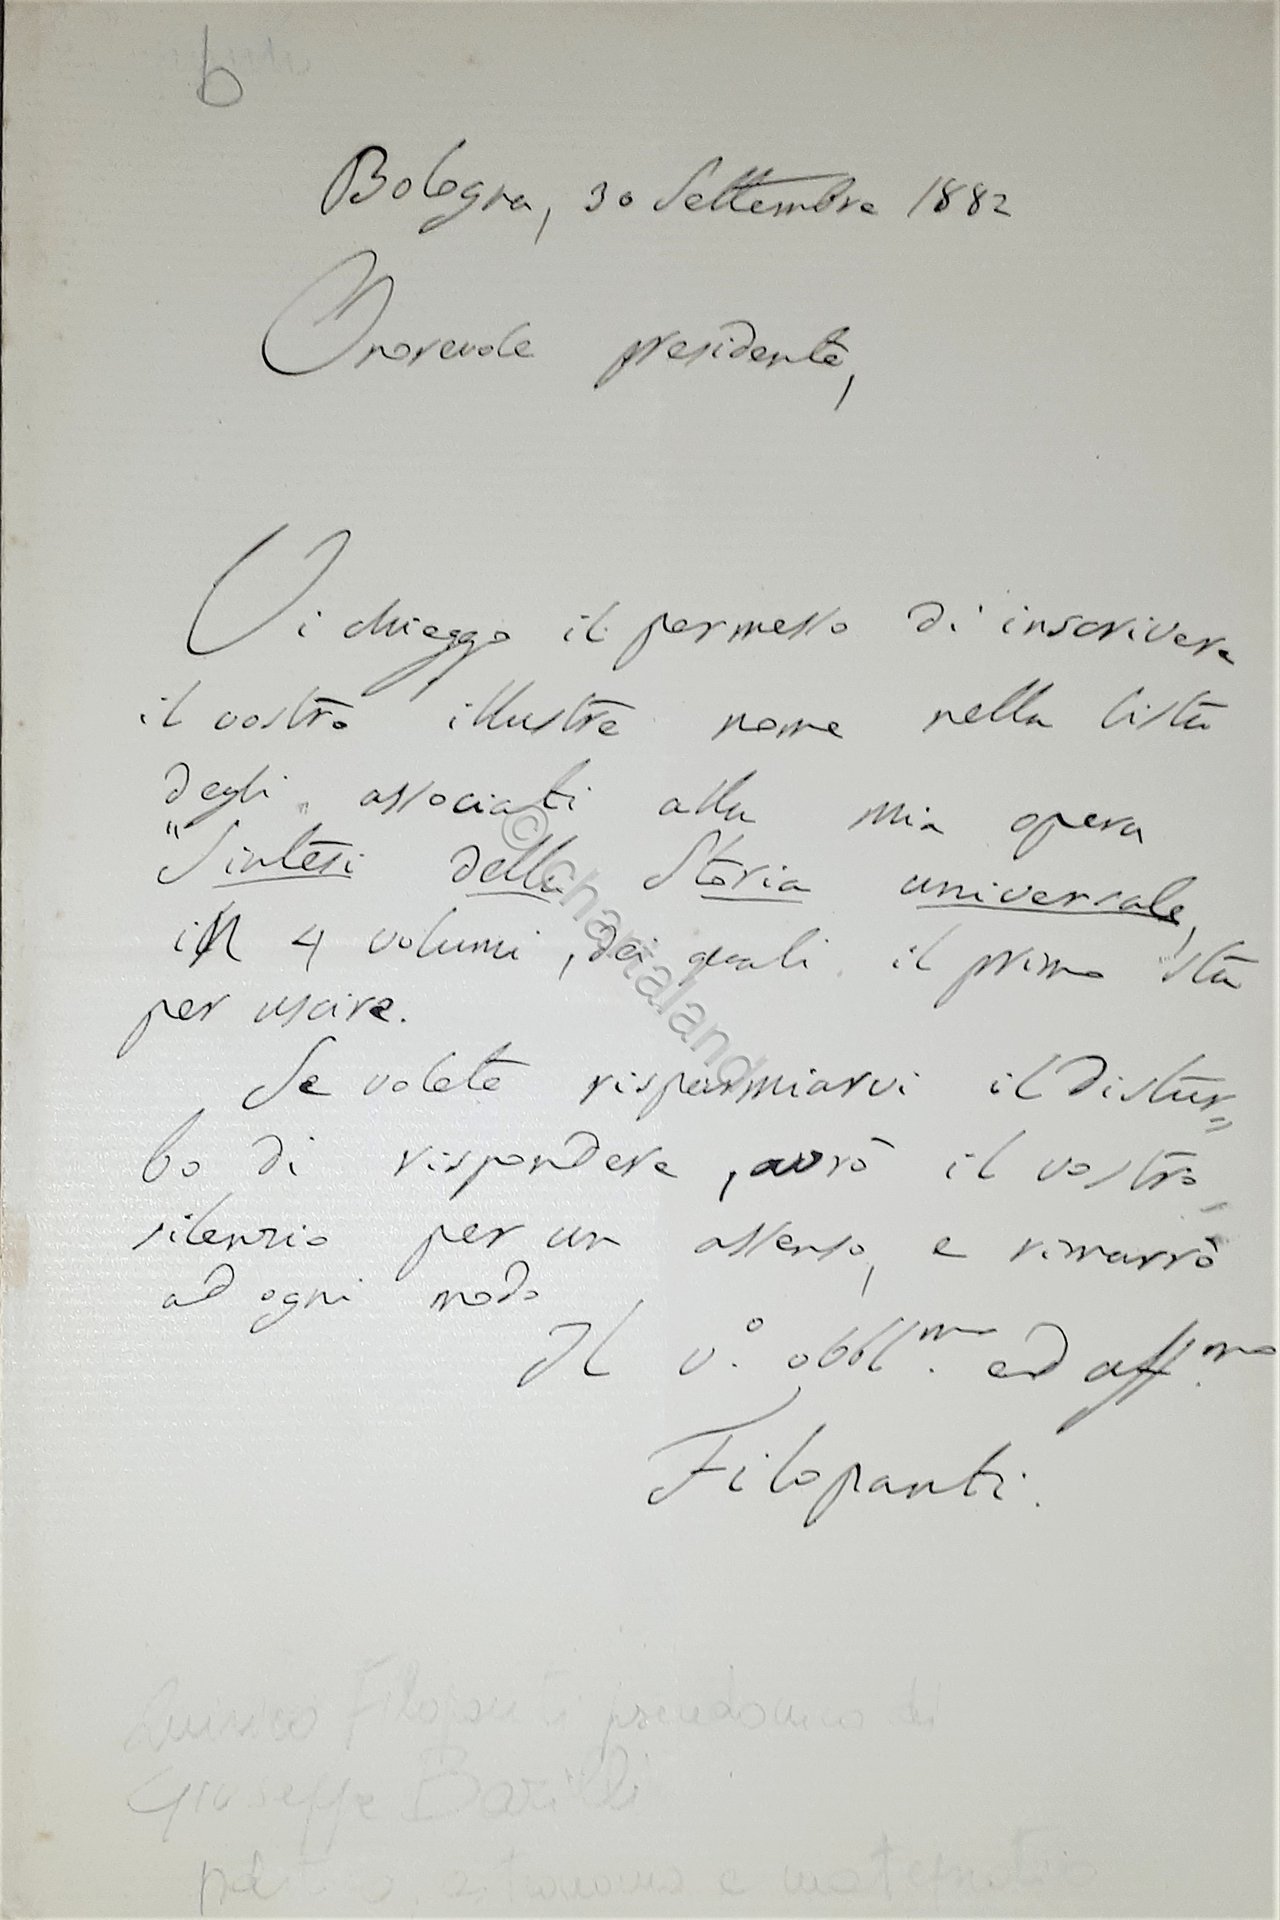 b
Bologna, 30 Settembre 1882
Onorevole presidente,
Vi chieggo il permesso di inscrivere
il vostro illustre nome nella lista
degli associati alla mia opera
"Sintesi della Storia universale,
in 4 volumi, dei quali il primo sta
per uscire.
Se volete risparmiarvi il distur=
bo di rispondere, avrò il vostro
silenzio per un assenso, e rimarrò
ad ogni modo
Il v.º obbl.mo ed aff.mo
Filopanti.
Quirico Filopanti pseudonimo di
Giuseppe Barilli
astronomo e matematico
© chartaland